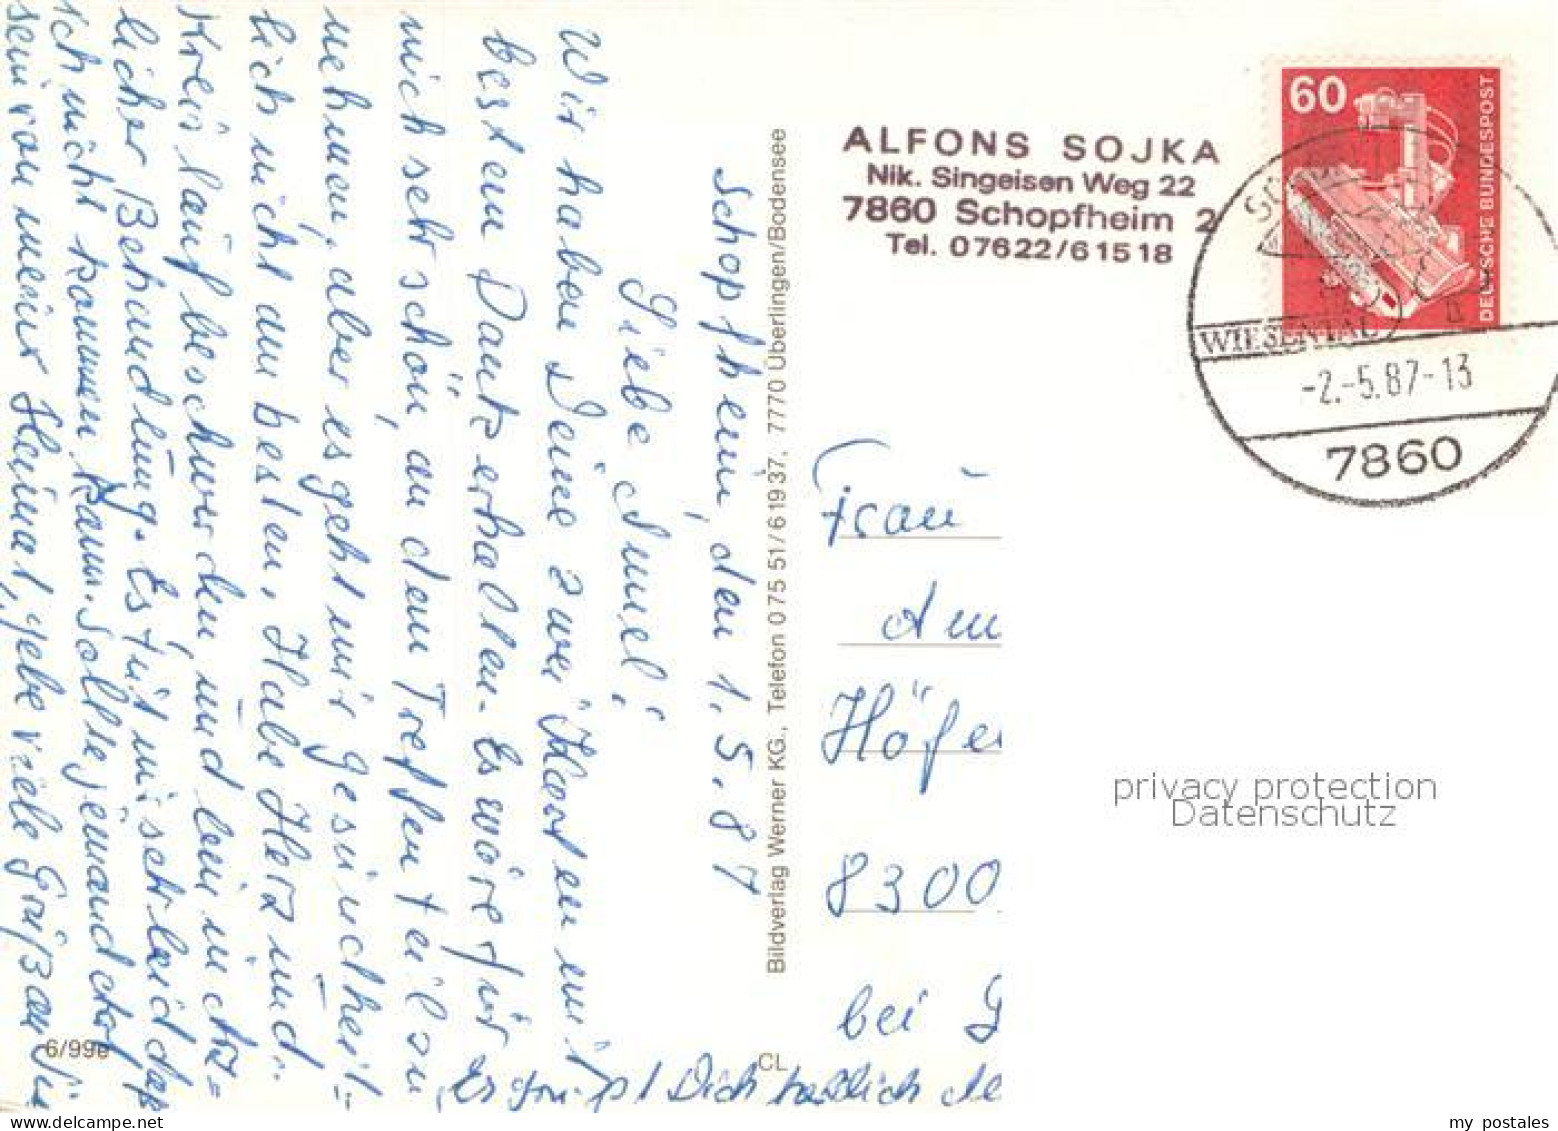 Schopfheim, den 1.5.87
Liebe Amei!
Wir haben Deine zwei Karten mit
bestem Dank erhalten. Es wäre für
mich sehr schön, an dem Treffen teilzu
nehmen, aber es geht mir gesundheit-
lich nicht am besten. Habe Herz und
Kreislaufbeschwerden, und bin in ärz=
licher Behandlung. Es tut mir sehr leid daß
ich nicht kommen kann. Sollte jemand da
sein von meiner Heimat, gebe viele Grüße an Sie
Es grüßt Dich herzlich
Bildverlag Werner KG., Telefon 075 51/61937, 7770 Überlingen/Bodensee
6/99e
CL
ALFONS SOJKA
Nik. Singeisen Weg 22
7860 Schopfheim 2
Tel. 07622/61518
60
DEUTSCHE BUNDESPOST
WIESENTAL
-2.-5.87-13
7860
Frau
Höfe
8300
bei
privacy protection
Datenschutz
my postales